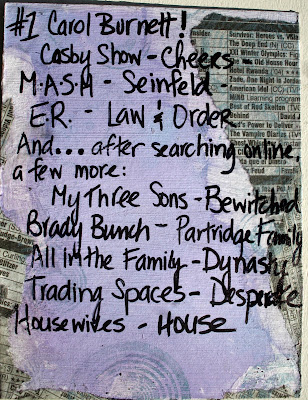 #1 Carol Burnett!
Cosby Show - Cheers
M.A.S.H - Seinfeld -
E.R. - Law & Order
And... after searching online,
a few more:
My Three Sons - Bewitched
Brady Bunch - Partridge Family
All In the Family - Dynasty
Trading Spaces - Desperate
Housewives - HOUSE
Survivor: Heroes vs. Villa
The Deep End (N) (CC)
XXI Winter Olympics: Fig
Old House Hour
American Idol (CC)
The Vampire Diaries